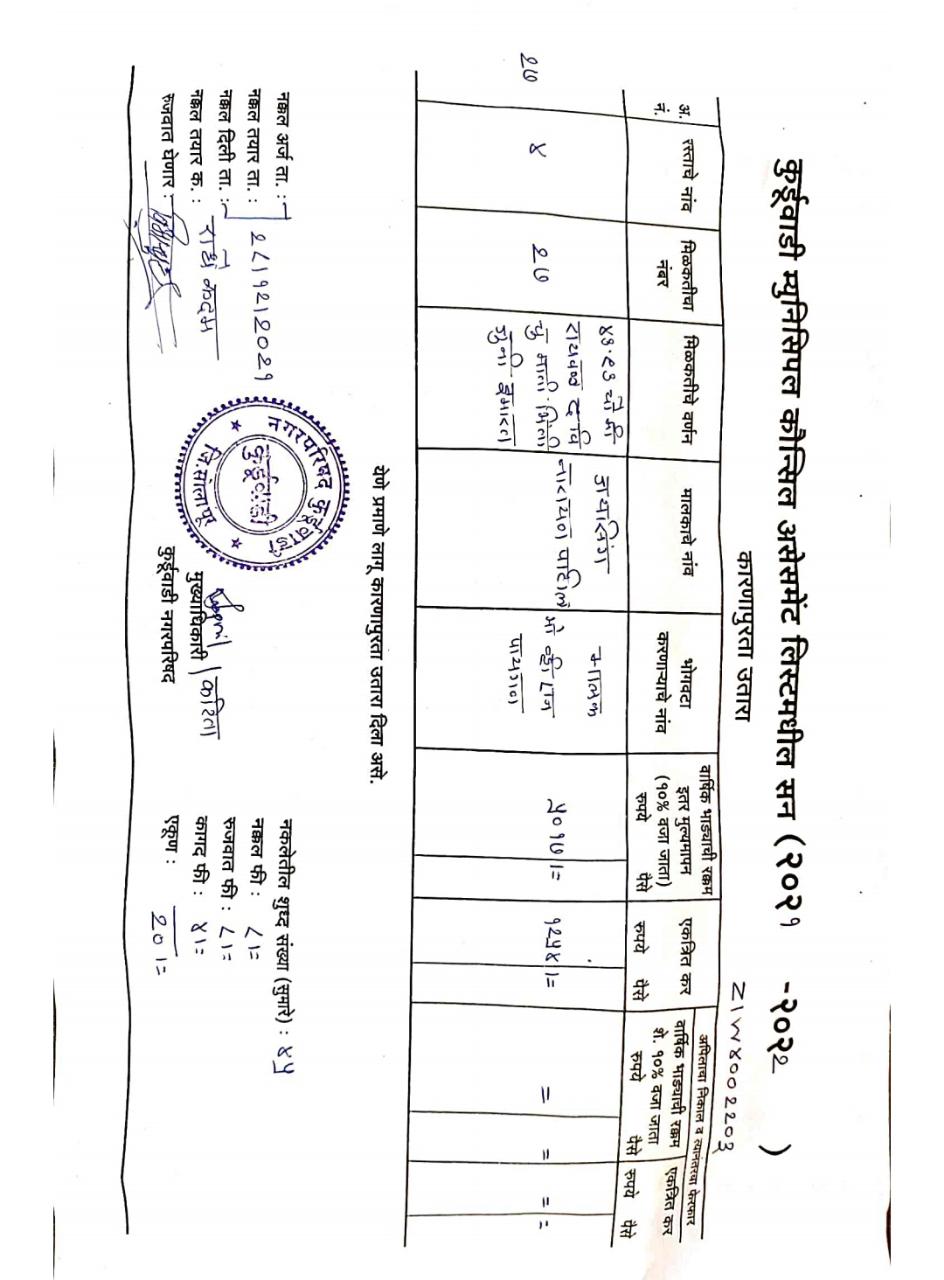 कुर्डूवाडी म्युनिसिपल कौन्सिल असेसमेंट लिस्टमधील सन (२०२१ -२०२२ )
कारणापुरता उतारा
अ. नं.
रस्ताचे नांव
मिळकतीचा नंबर
मिळकतीचे वर्णन
मालकाचे नांव
भोगवटा करणाऱ्याचे नांव
वार्षिक भाड्याची रक्कम इतर मुल्यमापन (१०% वजा जाता) रुपये पैसे
एकत्रित कर रुपये पैसे
अपिलाचा निकाल व त्यानंतरचा फेरफार
वार्षिक भाड्याची रक्कम शे. १०% वजा जाता रुपये पैसे
एकत्रित कर रुपये पैसे
२७
४
२७
नारायण पाटिल
मालक
५०१७।=
१२५४।=
=
=
=
=
येणे प्रमाणे लागु कारणापुरता उतारा दिला असे.
नक्कल अर्ज ता. :
नक्कल तयार ता. : २८।१२।२०२१
नक्कल दिली ता. :
नक्कल तयार क. :
रुजवात घेणार :
नगरपरिषद कुर्डूवाडी
कुर्डूवाडी
जि.सोलापूर
मुख्याधिकारी / करिता
कुर्डूवाडी नगरपरिषद
नकलेतील शुध्द संख्या (सुमारे) : ४५
नक्कल फी : ८।=
रुजवात फी : ८।=
कागद फी : ४।=
एकूण : २०।=